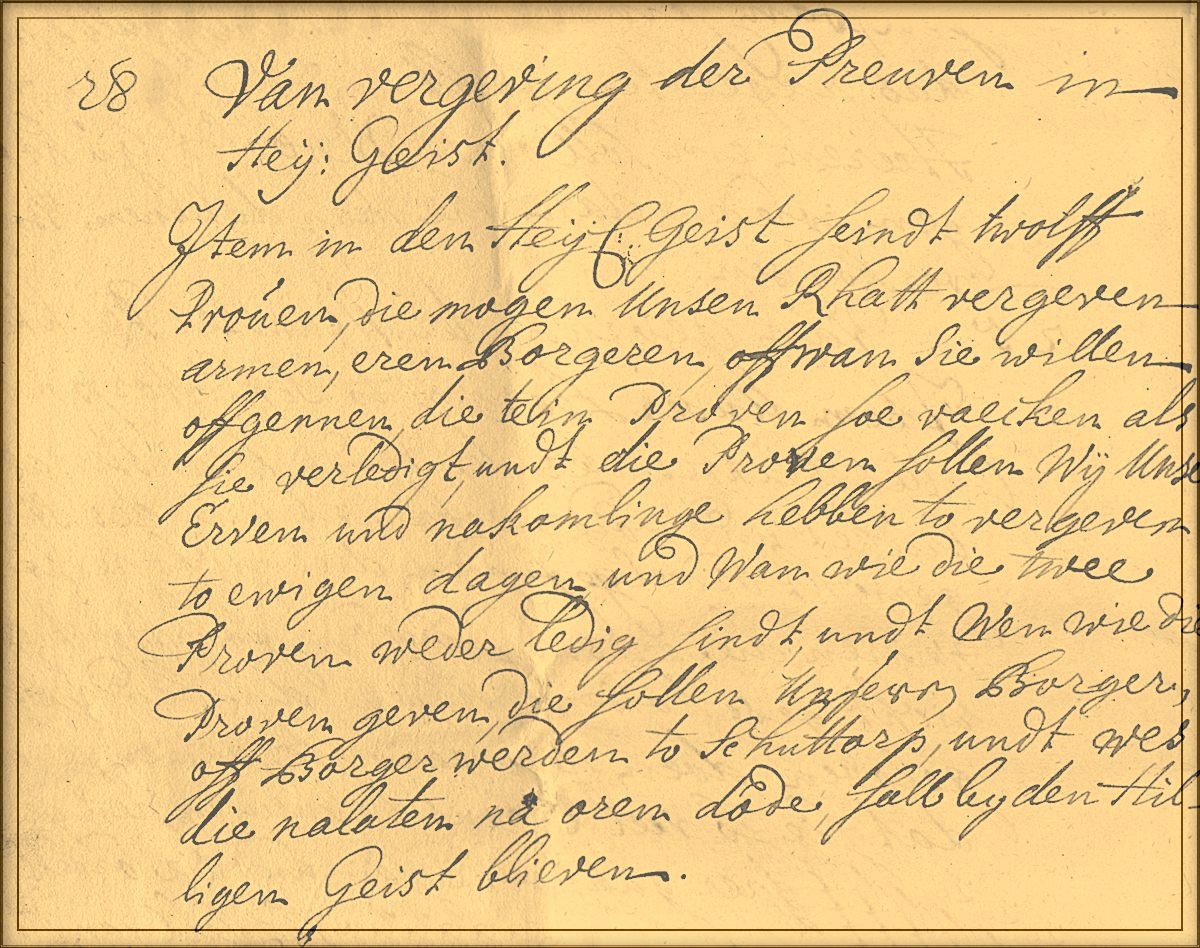 28 Van vergeving der Preuven in
Heij: Geist.
Item in den Heijl: Geist seindt twolff
Proüen, die mogen Unsen Rhatt vergeven
armen, eren Borgeren, off wan Sie willen
off gennen, die tein Proven soe vaecken als
sie verledigt, undt die Proven sollen Wij Unse
Erven und nakomlinge hebben to vergeven
to ewigen dagen, und Wan wie die twee
Proven weder ledig sindt, undt Wen wie die
Proven geven, die sollen Unsern Borger,
off Borger werden to Schuttorp, undt wes
die nalaten na oren dode, sall by den Hil-
ligen Geist blieven.